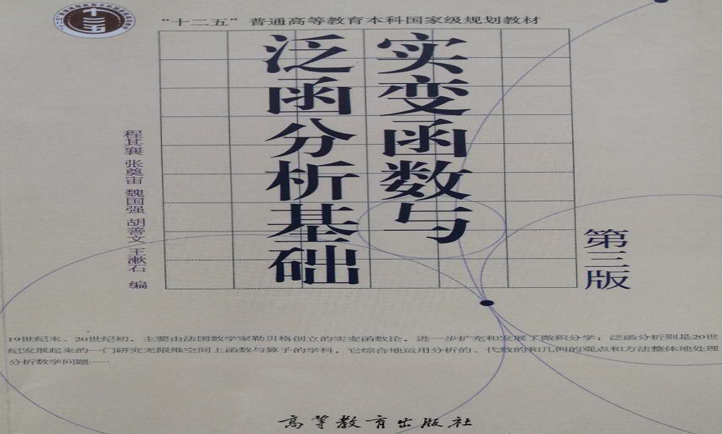 “十二五”普通高等教育本科国家级规划教材
实变函数与
泛函分析基础
第三版
程其襄 张奠宙 魏国强 胡善文 王漱石 编
19世纪末、20世纪初，主要由法国数学家勒贝格创立的实变函数论，进一步扩充和发展了微积分学；泛函分析则是20世
纪发展起来的一门研究无限维空间上函数与算子的学科，它综合地运用分析的、代数的和几何的观点和方法整体地处理
分析数学问题……
高等教育出版社